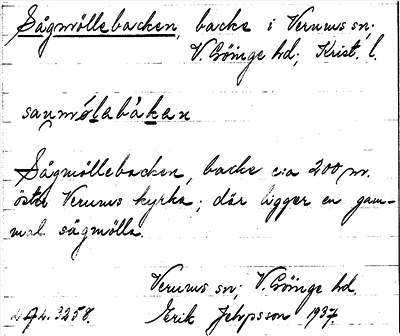 Sågmöllebacken, backe i Verums sn;
V. Göinge hd; Krist. l.
saumölabákan
Sågmöllebacken, backe c:a 200 m.
öster Verums kyrka; där ligger en gam-
mal sågmölla.
Verums sn; V. Göinge hd.
3258. Erik Jeppsson 1937.